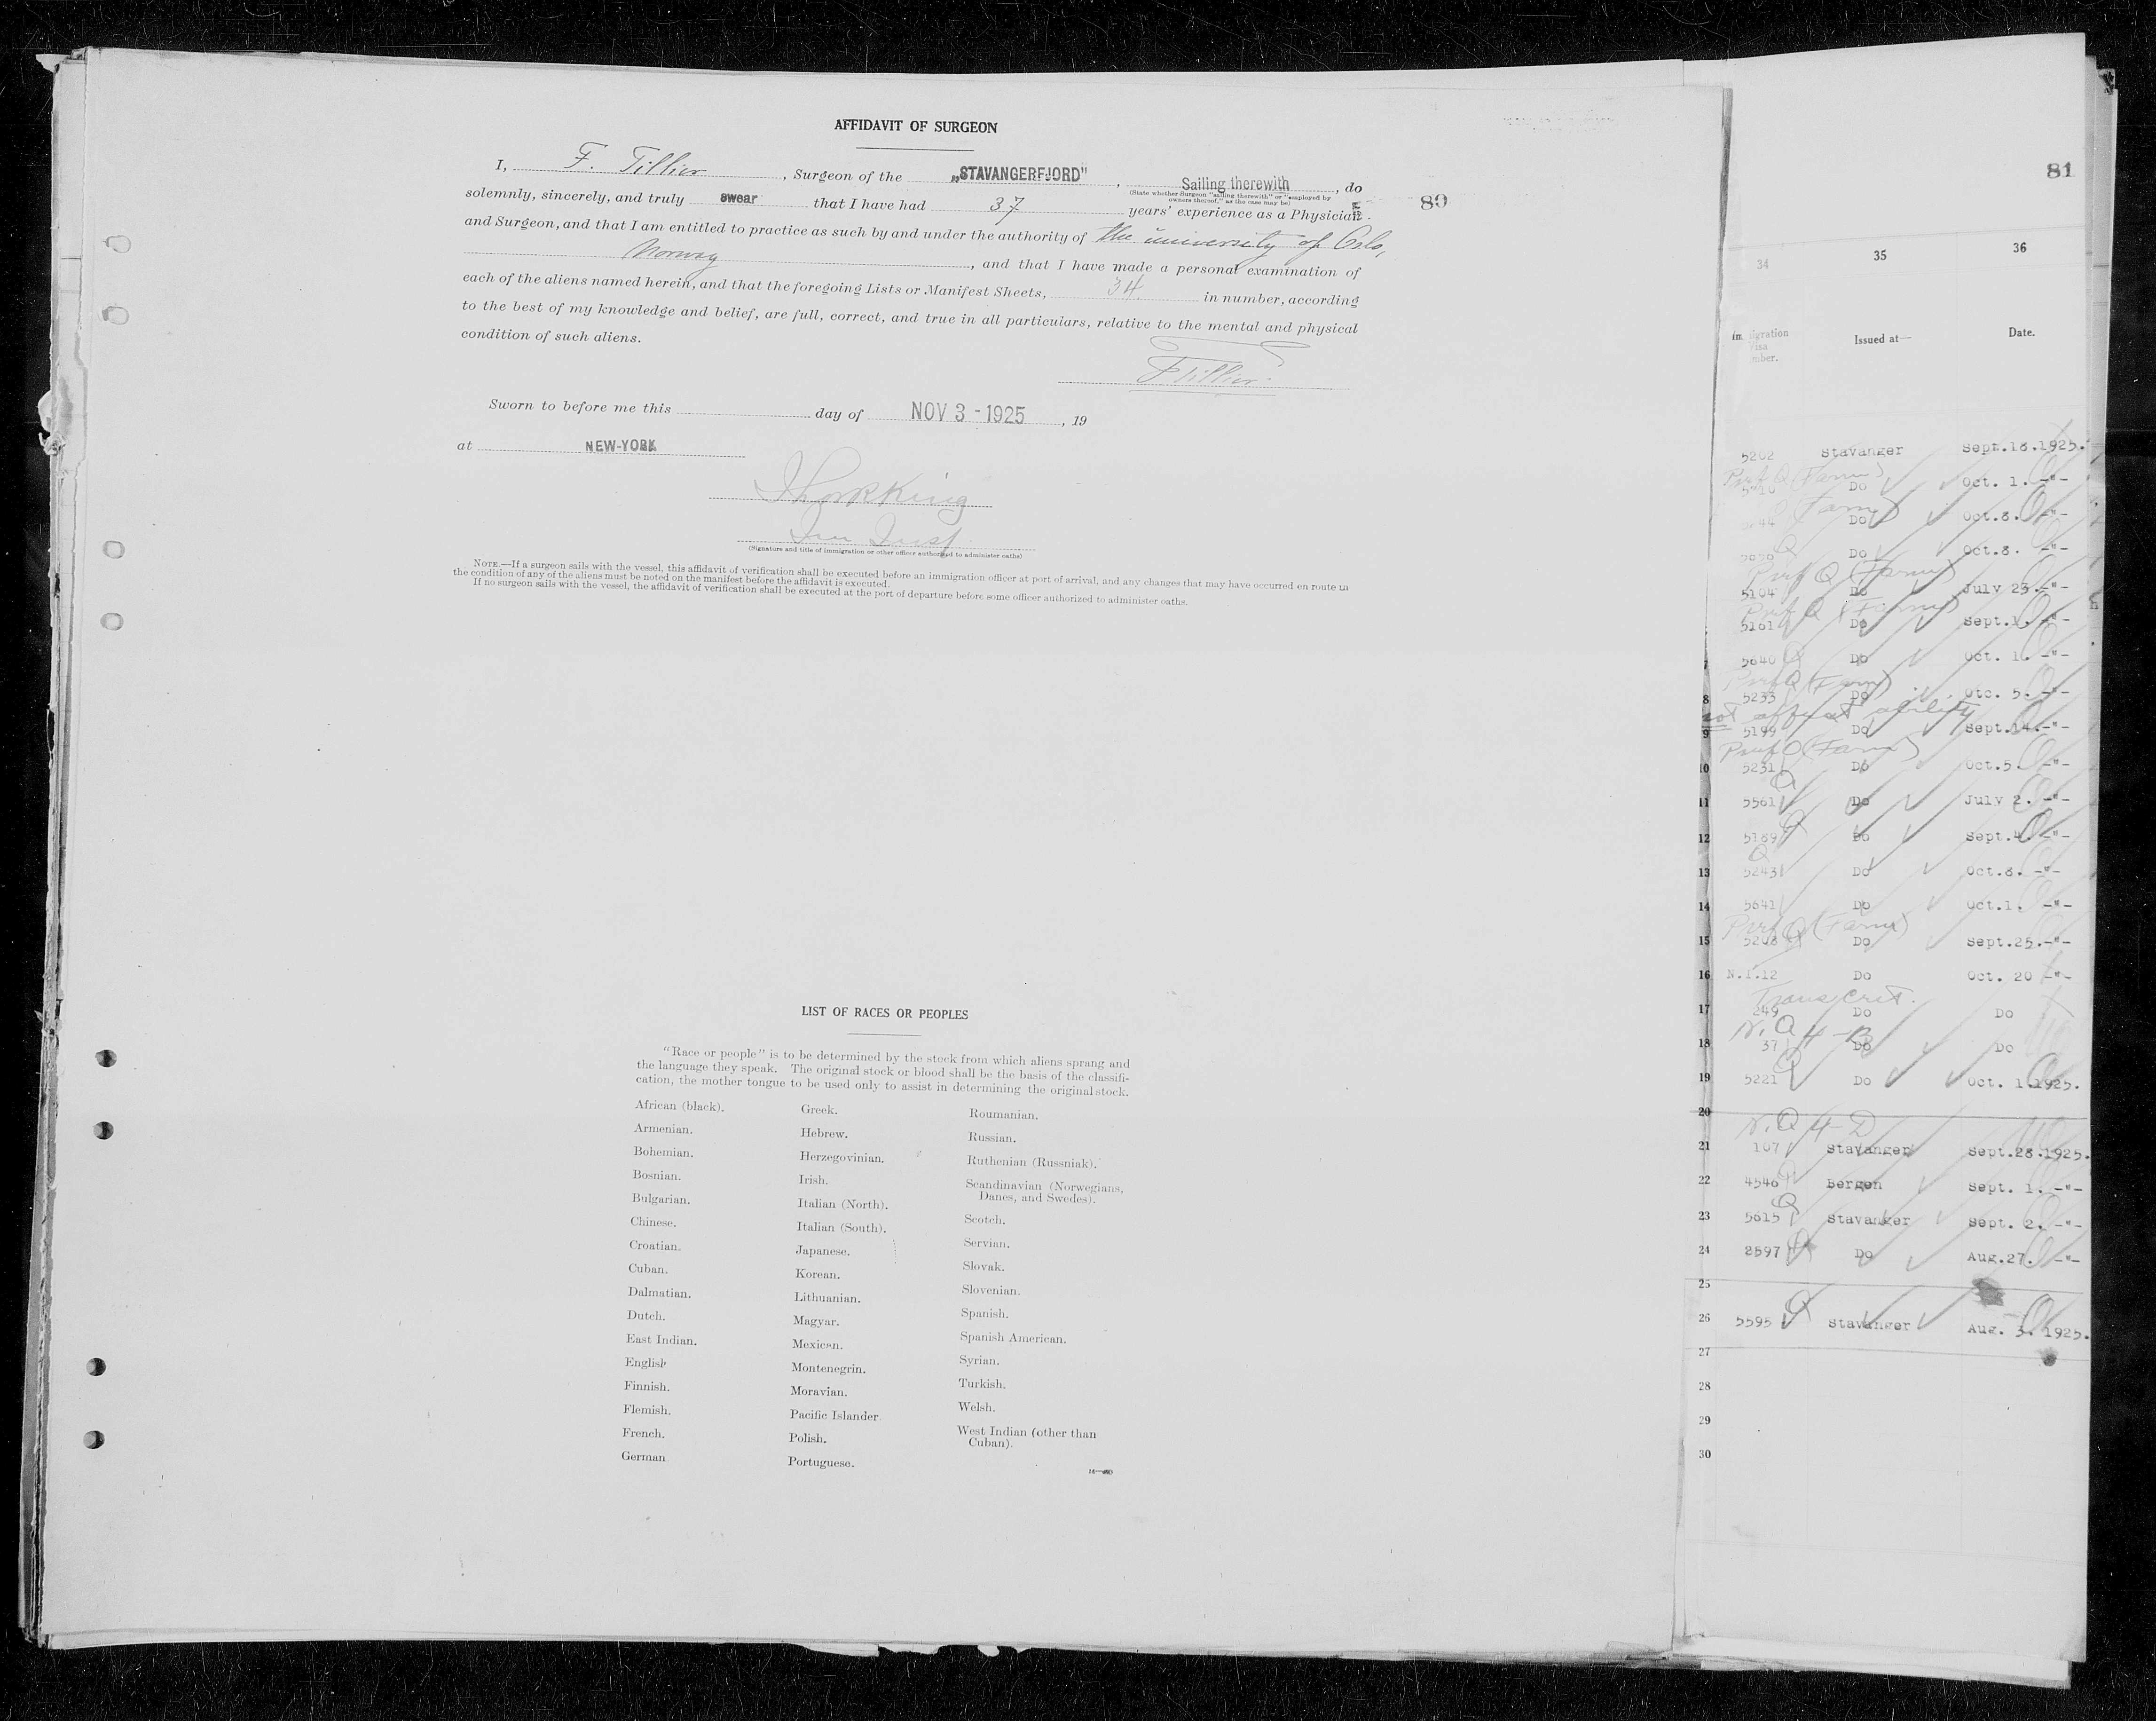 AFFIDAVIT OF SURGEON
I, F. Tillier, Surgeon of the „STAVANGERFJORD", Sailing therewith, do
(State whether Surgeon "sailing therewith" or "employed by owners thereof," as the case may be)
solemnly, sincerely, and truly swear that I have had 37 years' experience as a Physician
89
and Surgeon, and that I am entitled to practice as such by and under the authority of the university of Oslo,
Norway, and that I have made a personal examination of
each of the aliens named herein, and that the foregoing Lists or Manifest Sheets, 34 in number, according
to the best of my knowledge and belief, are full, correct, and true in all particulars, relative to the mental and physical
condition of such aliens.
F Tillier
Sworn to before me this day of NOV 3 - 1925, 19
at NEW-YORK
Imm Insp
(Signature and title of immigration or other officer authorized to administer oaths)
NOTE.—If a surgeon sails with the vessel, this affidavit of verification shall be executed before an immigration officer at port of arrival, and any changes that may have occurred on route in
the condition of any of the aliens must be noted on the manifest before the affidavit is executed.
If no surgeon sails with the vessel, the affidavit of verification shall be executed at the port of departure before some officer authorized to administer oaths.
LIST OF RACES OR PEOPLES
"Race or people" is to be determined by the stock from which aliens sprang and
the language they speak. The original stock or blood shall be the basis of the classifi-
cation, the mother tongue to be used only to assist in determining the original stock.
African (black).
Armenian.
Bohemian.
Bosnian.
Bulgarian.
Chinese.
Croatian.
Cuban.
Dalmatian.
Dutch.
East Indian.
English
Finnish.
Flemish.
French.
German
Greek.
Hebrew.
Herzegovinian.
Irish.
Italian (North).
Italian (South).
Japanese.
Korean.
Lithuanian.
Magyar.
Mexican.
Montenegrin.
Moravian.
Pacific Islander
Polish.
Portuguese.
Roumanian.
Russian.
Ruthenian (Russniak).
Scandinavian (Norwegians,
Danes, and Swedes).
Scotch.
Servian.
Slovak.
Slovenian.
Spanish.
Spanish American.
Syrian.
Turkish.
Welsh.
West Indian (other than
Cuban).
81
34 35 36
Issued at— Date.
5202 Stavanger Sept.18.1925.
Do Oct. 1. -"-
Do Oct.8. -"-
Do Oct.8. -"-
5104 Do July 23.-"-
5161 Do Sept.1. -"-
7 5640 Do Oct. 1. -"-
8 5233 Do Otc. 5. -"-
9 5199 Do Sept.14.-"-
10 5231 Do Oct.5. -"-
11 5561 Do July 2. -"-
12 5189 Do Sept.4. -"-
13 5243 Do Oct.8. -"-
14 5641 Do Oct.1. -"-
15 5208 Do Sept.25.-"-
16 N.I.12 Do Oct. 20 -"-
17 249 Do Do
N.Q 4-B
18 37 Do Do
19 5221 Do Oct. 1.1925.
20
N.Q 4-D
21 107 Stavanger Sept.28.1925.
22 4546 Bergen Sept. 1. -"-
23 5615 Stavanger Sept. 2. -"-
24 2597 Do Aug.27. -"-
25
26 5595 Stavanger Aug. 3. 1925.
27
28
29
30